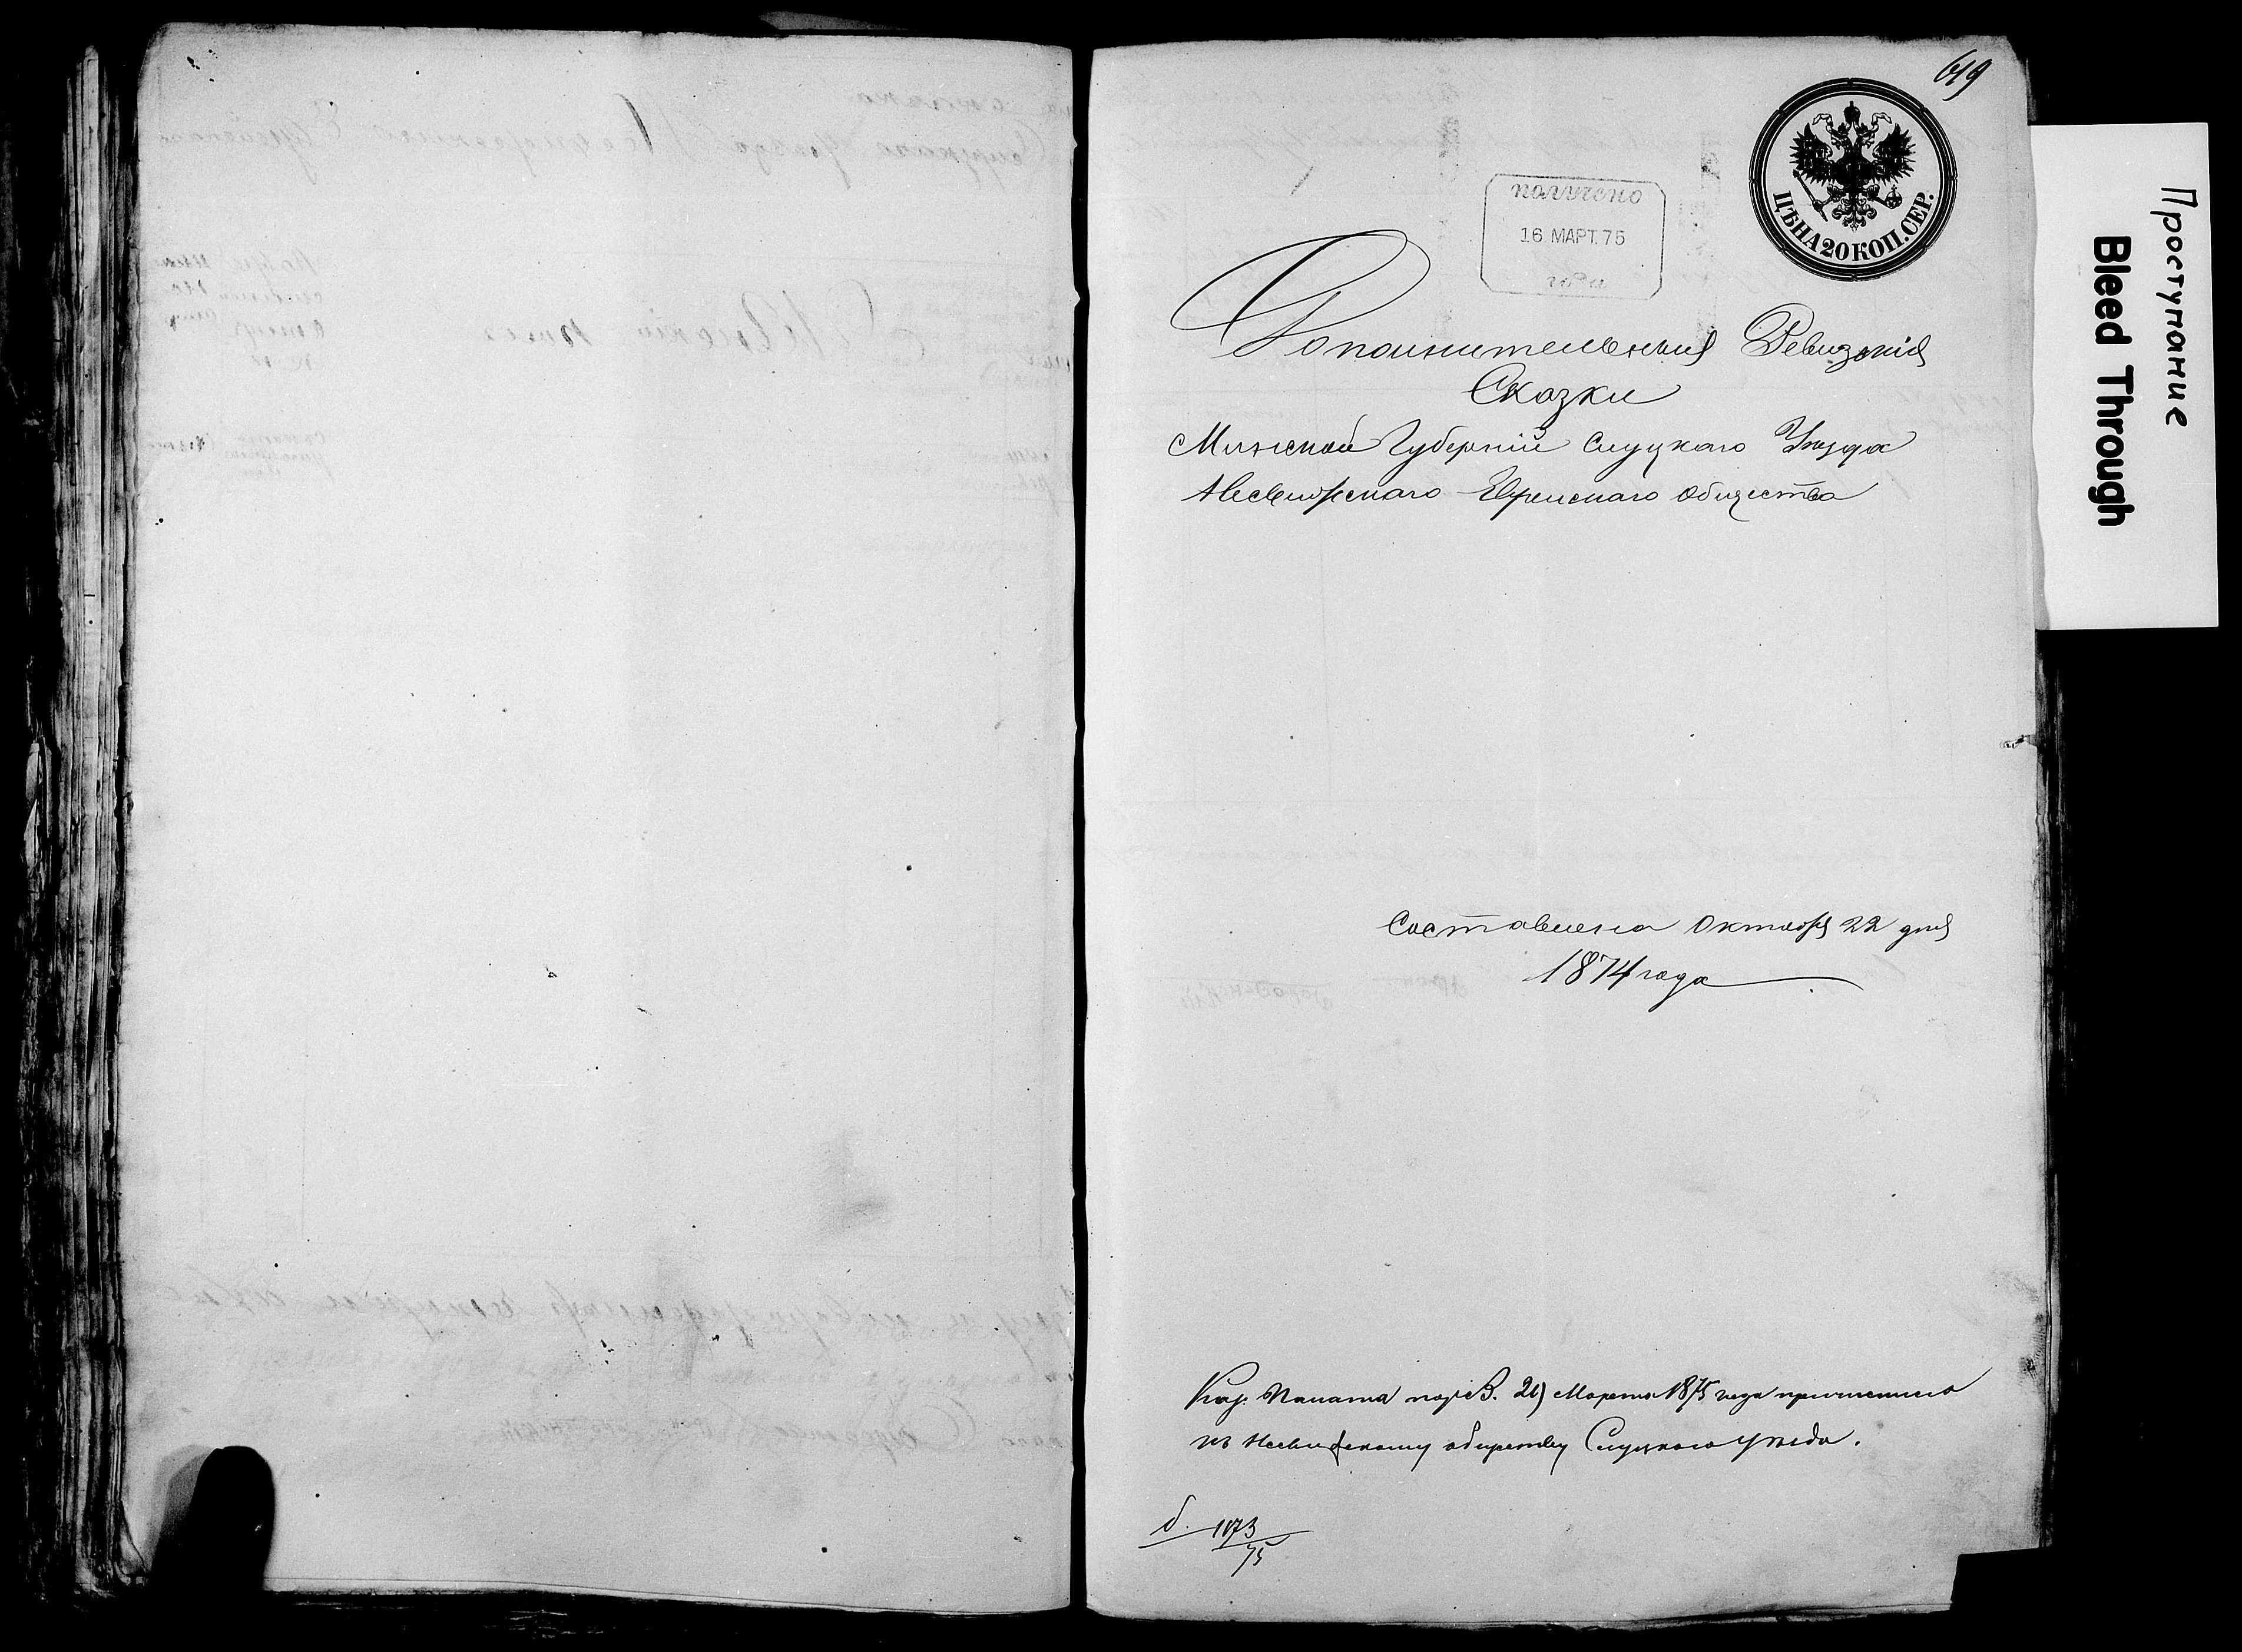 619
ЦѢНА 20 КОП. СЕР.
получено
16 МАРТ. 75
Дополнительныя Ревизкія
Сказки
Минской Губерніи Слуцкаго Уѣзда
Несвижскаго Еврейскаго Общества
Составлена Октября 22 дня
1874 года
Каз. Палата 21) Марта 1875 года причислила
къ Несвижскому обществу Слуцкаго уѣзда.
1173
75
Проступание
Bleed Through